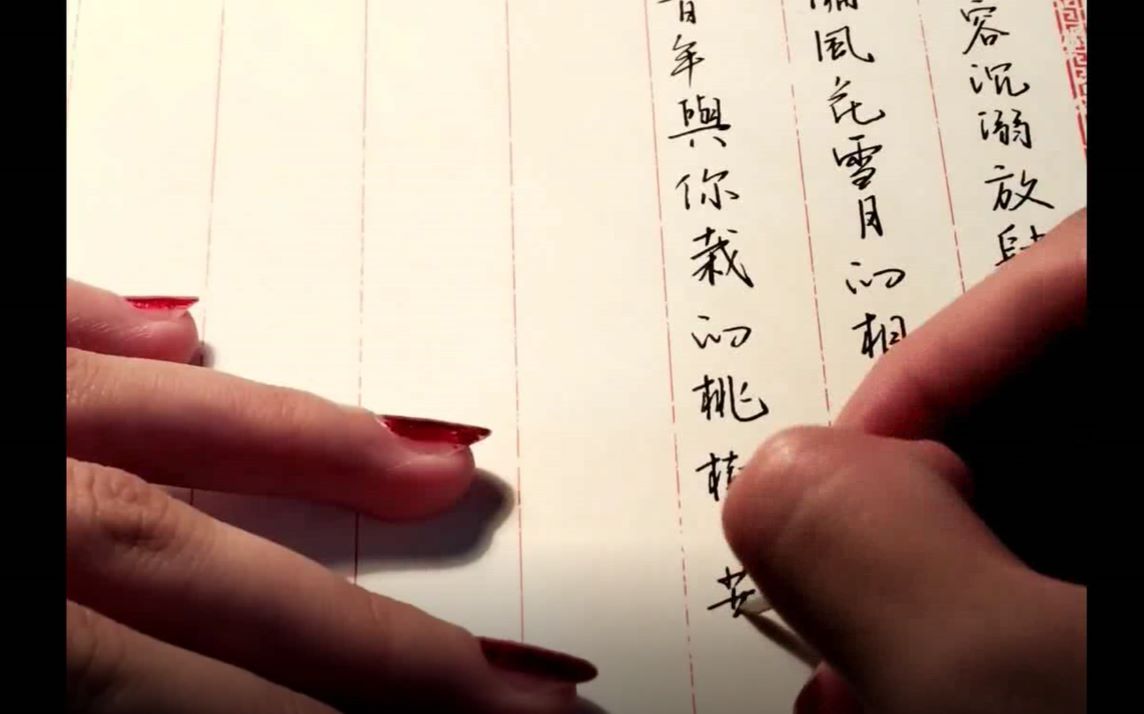 容沉溺放
風花雪月的相
年與你栽的桃